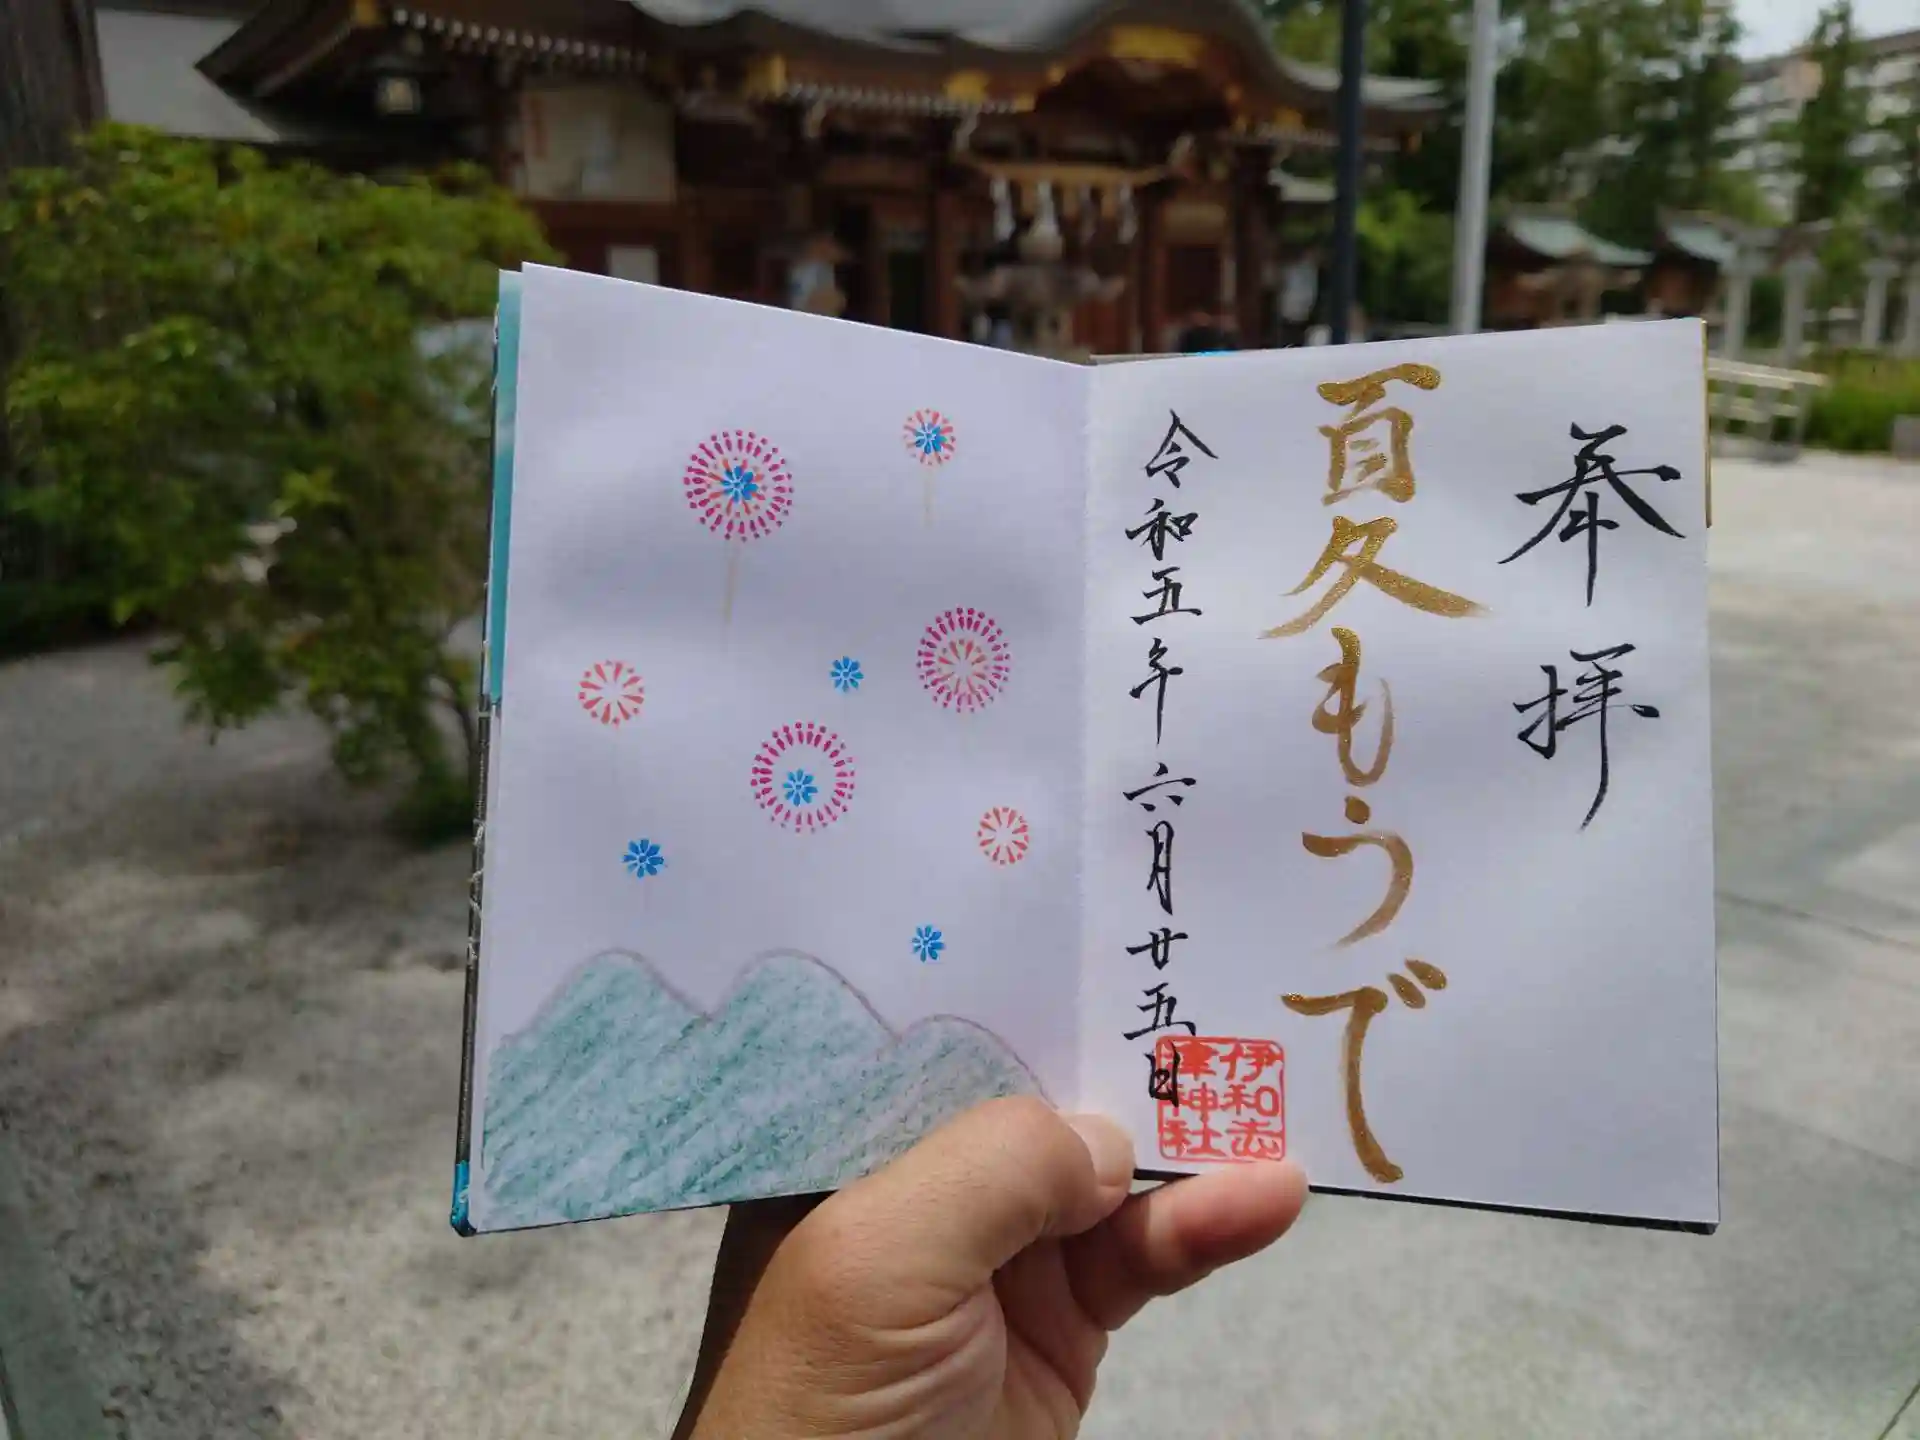 奉拝
夏もうで
令和五年六月廿五日
伊和志
津神社